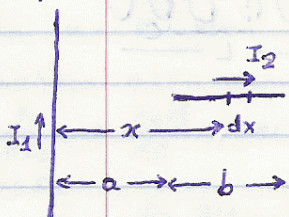 I2
I1 x dx
a b